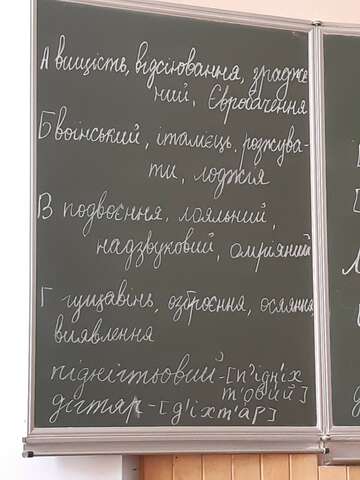 А вищість, відсіювання, зрадже
ний, Євробачення
Б воїнський, італієць, розжува-
ти, лоджія
В подвоєння, лояльний,
надзвуковий, омріяний
Г гущавінь, озброєння, осляння
виявлення
піднігтьовий - [п'ідн'іх
т'овий]
дігтяр - [д'іхт'ар]